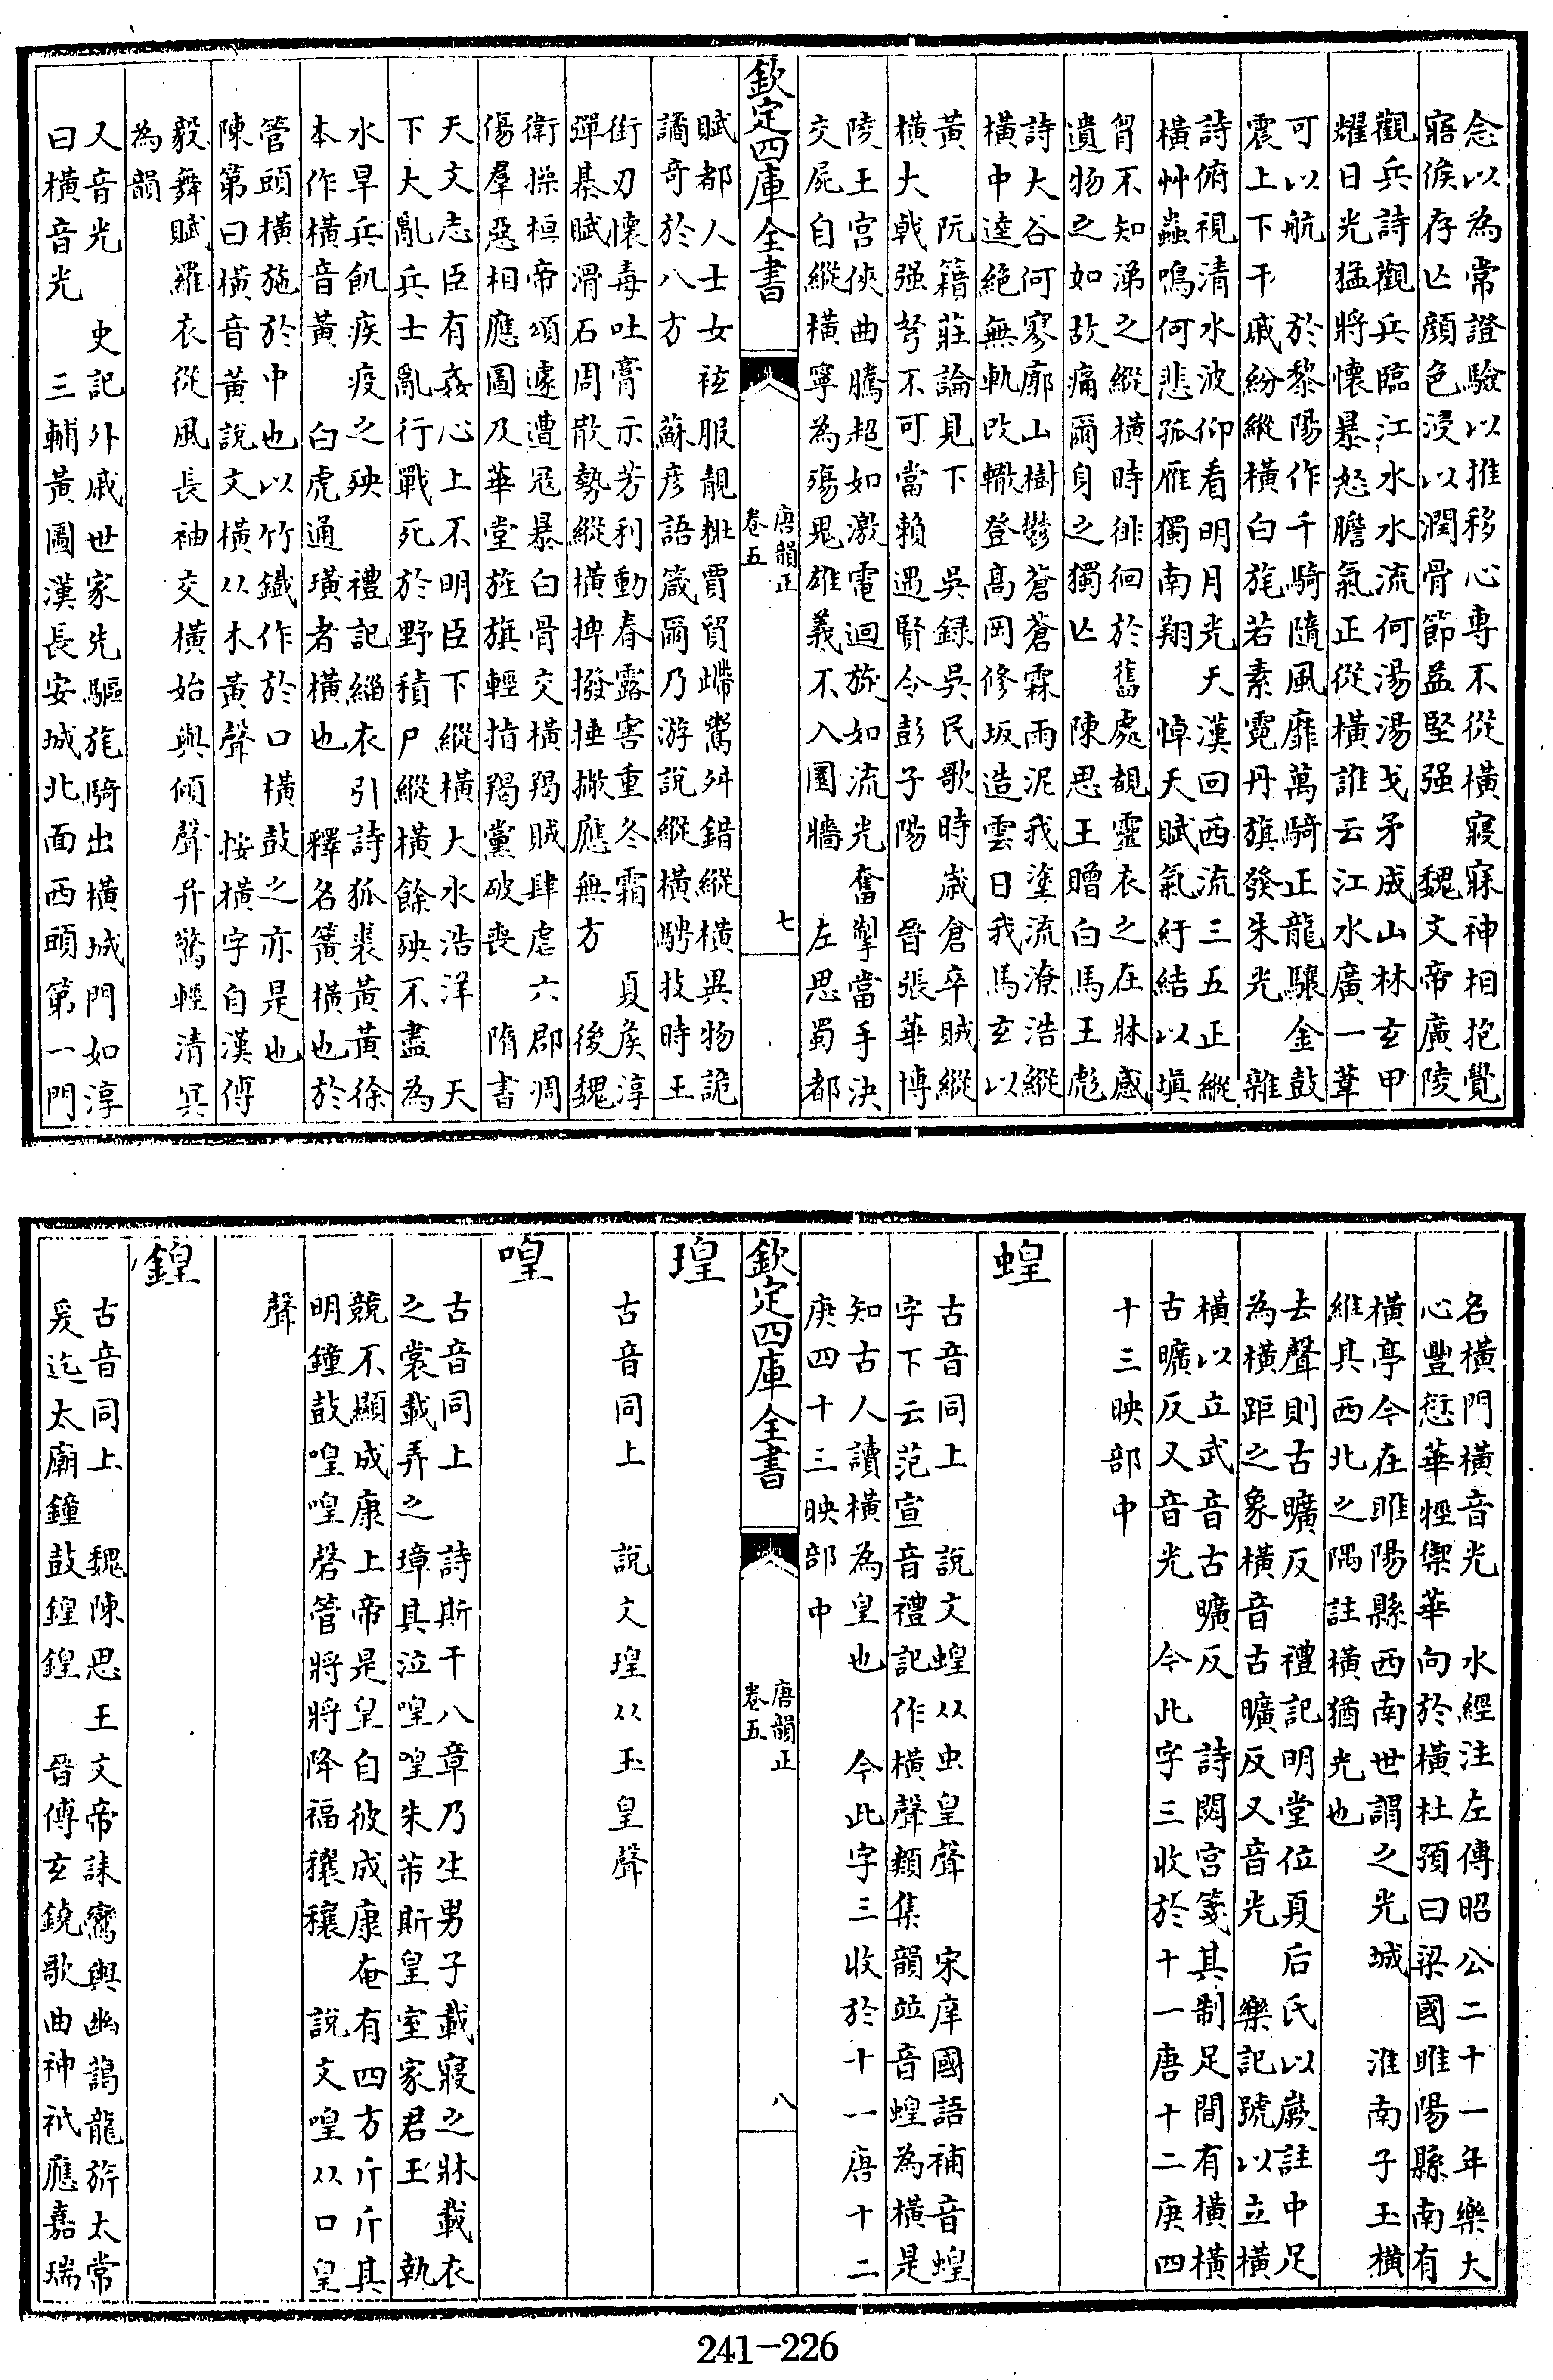 念以為常證驗以推移心專不從橫寢寐神相抱覺
寤俟存亾顔色浸以潤骨節益堅强　魏文帝廣陵
觀兵詩觀兵臨江水水流何湯湯戈矛成山林玄甲
耀日光猛將懷暴怒膽氣正從橫誰云江水廣一葦
可以航　於黎陽作千騎隨風靡萬騎正龍驤金鼓
震上下干戚紛縱橫白旄若素霓丹旗發朱光　雜
詩俯視清水波仰看明月光天漢回西流三五正縱
橫艸蟲鳴何悲孤雁獨南翔　悼夭賦氣紆結以塡
胷不知涕之縱橫時徘徊於舊處覩靈衣之在牀感
遺物之如故痛爾身之獨亾　陳思王贈白馬王彪
詩大谷何寥廓山樹鬱蒼蒼霖雨泥我塗流潦浩縱
橫中逵絶無軌改轍登高岡修坂造雲日我馬玄以
黃　阮籍莊論見下　吳録吳民歌時歲倉卒賊縱
橫大戟强弩不可當賴遇賢令彭子陽　晉張華博
陵王宮俠曲騰超如激電迴旋如流光奮擊當手決
交屍自縱橫寧為殤鬼雄義不入圜牆　左思蜀都
欽定四庫全書
唐韻正
卷五
七
賦都人士女袨服靚粧賈貿墆鬻舛錯縱橫異物詭
譎奇於八方　蘇彦語箴爾乃游說縱橫騁技時王
銜刃懷毒吐膏示芳利動春露害重冬霜　夏侯淳
彈棊賦滑石周散勢縱橫捭撥捶撇應無方　後魏
衛操桓帝頌遽遭冦暴白骨交橫羯賊肆虐六郡凋
傷羣惡相應圖及華堂旌旗輕指羯黨破喪　隋書
天文志臣有姦心上不明臣下縱橫大水浩洋　天
下大亂兵士亂行戰死於野積尸縱橫餘殃不盡為
水旱兵飢疾疫之殃　禮記緇衣引詩狐裘黃黃徐
本作橫音黃　白虎通璜者橫也　釋名簧橫也於
管頭橫施於中也以竹鐵作於口橫鼓之亦是也
陳第曰橫音黃說文橫从木黃聲　按橫字自漢傅
毅舞賦羅衣從風長袖交橫始與傾聲并驚輕清冥
為韻
又音光　史記外戚世家先驅旄騎出橫城門如淳
曰橫音光　三輔黃圖漢長安城北面西頭第一門
名橫門橫音光　水經注左傳昭公二十一年樂大
心豐愆華牼禦華向於橫杜預曰梁國睢陽縣南有
橫亭今在睢陽縣西南世謂之光城　淮南子玉橫
維其西北之隅註橫猶光也
去聲則古曠反　禮記明堂位夏后氏以嶡註中足
為橫距之象橫音古曠反又音光　樂記號以立橫
橫以立武音古曠反　詩閟宮箋其制足間有橫橫
古曠反又音光　今此字三收於十一唐十二庚四
十三映部中
蝗
古音同上　說文蝗从虫皇聲　宋庠國語補音蝗
字下云范宣音禮記作橫聲類集韻竝音蝗為橫是
知古人讀橫為皇也　今此字三收於十一唐十二
庚四十三映部中
欽定四庫全書
唐韻正
卷五
八
瑝
古音同上　說文瑝从玉皇聲
喤
古音同上　詩斯干八章乃生男子載寢之牀載衣
之裳載弄之璋其泣喤喤朱芾斯皇室家君王　執
競不顯成康上帝是皇自彼成康奄有四方斤斤其
明鐘鼓喤喤磬管將將降福穰穰　說文喤从口皇
聲
鍠
古音同上　魏陳思王文帝誄鸞輿幽藹龍旂太常
爰迄太廟鐘鼓鍠鍠　晉傅玄鐃歌曲神祇應嘉瑞
241-226